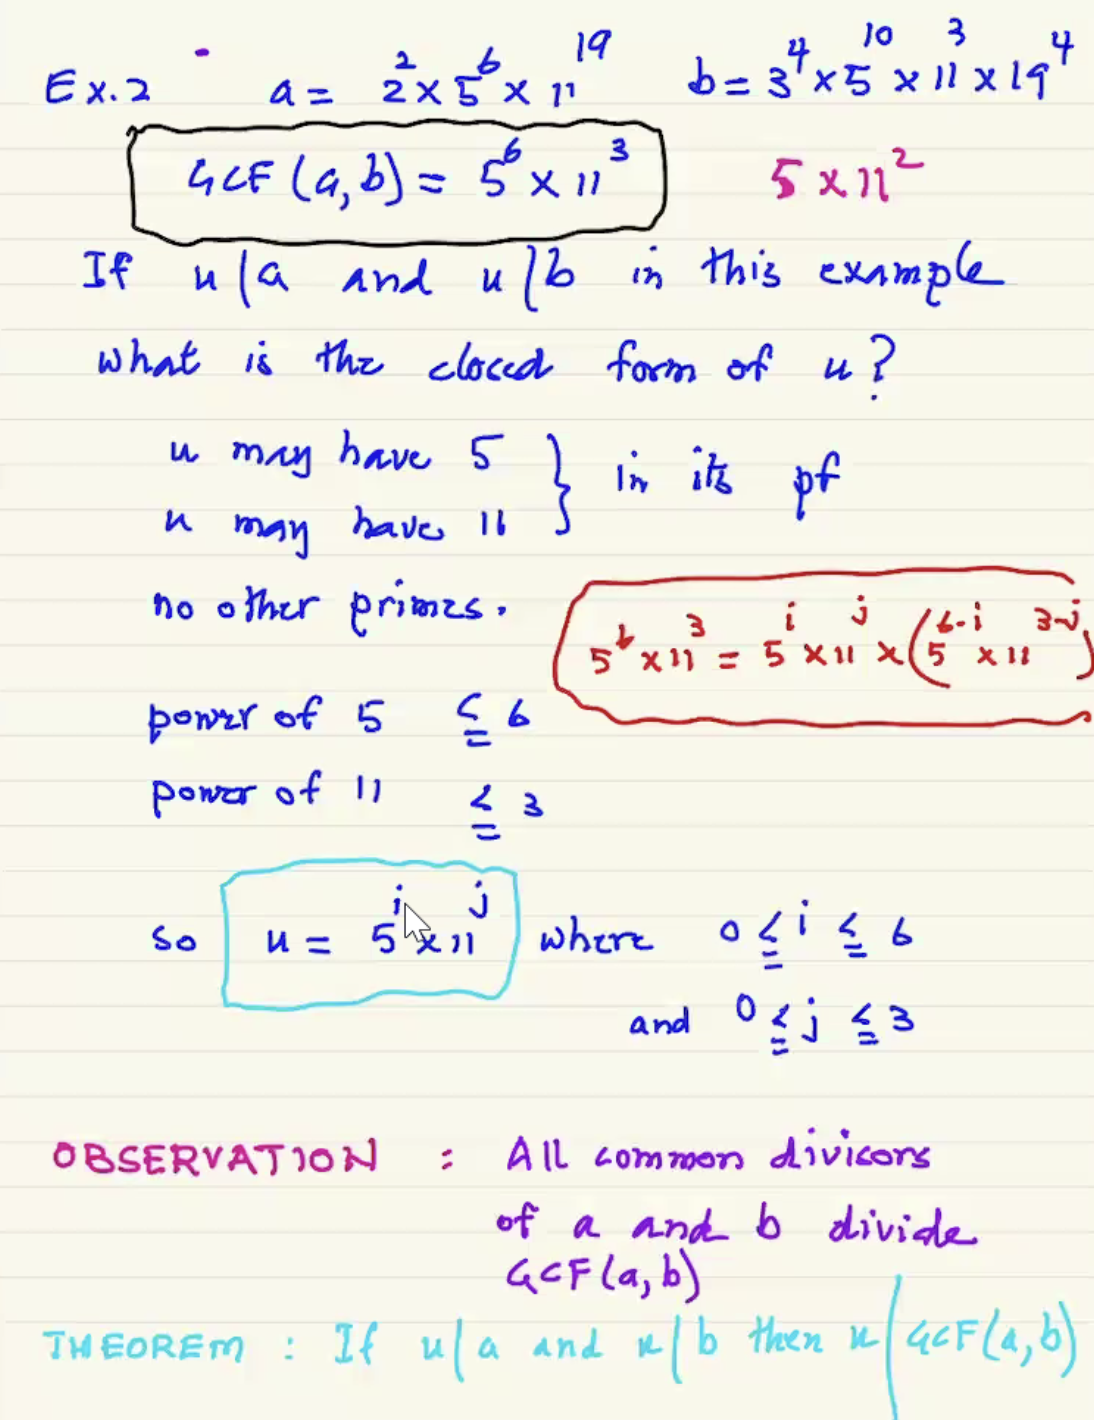 Ex.2 a = 2² × 5⁶ × 11¹⁹ b = 3⁴ × 5¹⁰ × 11³ × 19⁴
GCF (a, b) = 5⁶ × 11³ 5 × 11²
If u | a and u | b in this example
what is the closed form of u?
u may have 5
u may have 11 } in its pf
no other primes.
5⁶ × 11³ = 5ⁱ × 11ʲ × (5⁶⁻ⁱ × 11³⁻ʲ)
power of 5 ≤ 6
power of 11 ≤ 3
so u = 5ⁱ × 11ʲ where 0 ≤ i ≤ 6
and 0 ≤ j ≤ 3
OBSERVATION : All common divisors
of a and b divide
GCF(a, b)
THEOREM : If u | a and u | b then u | GCF(a, b)